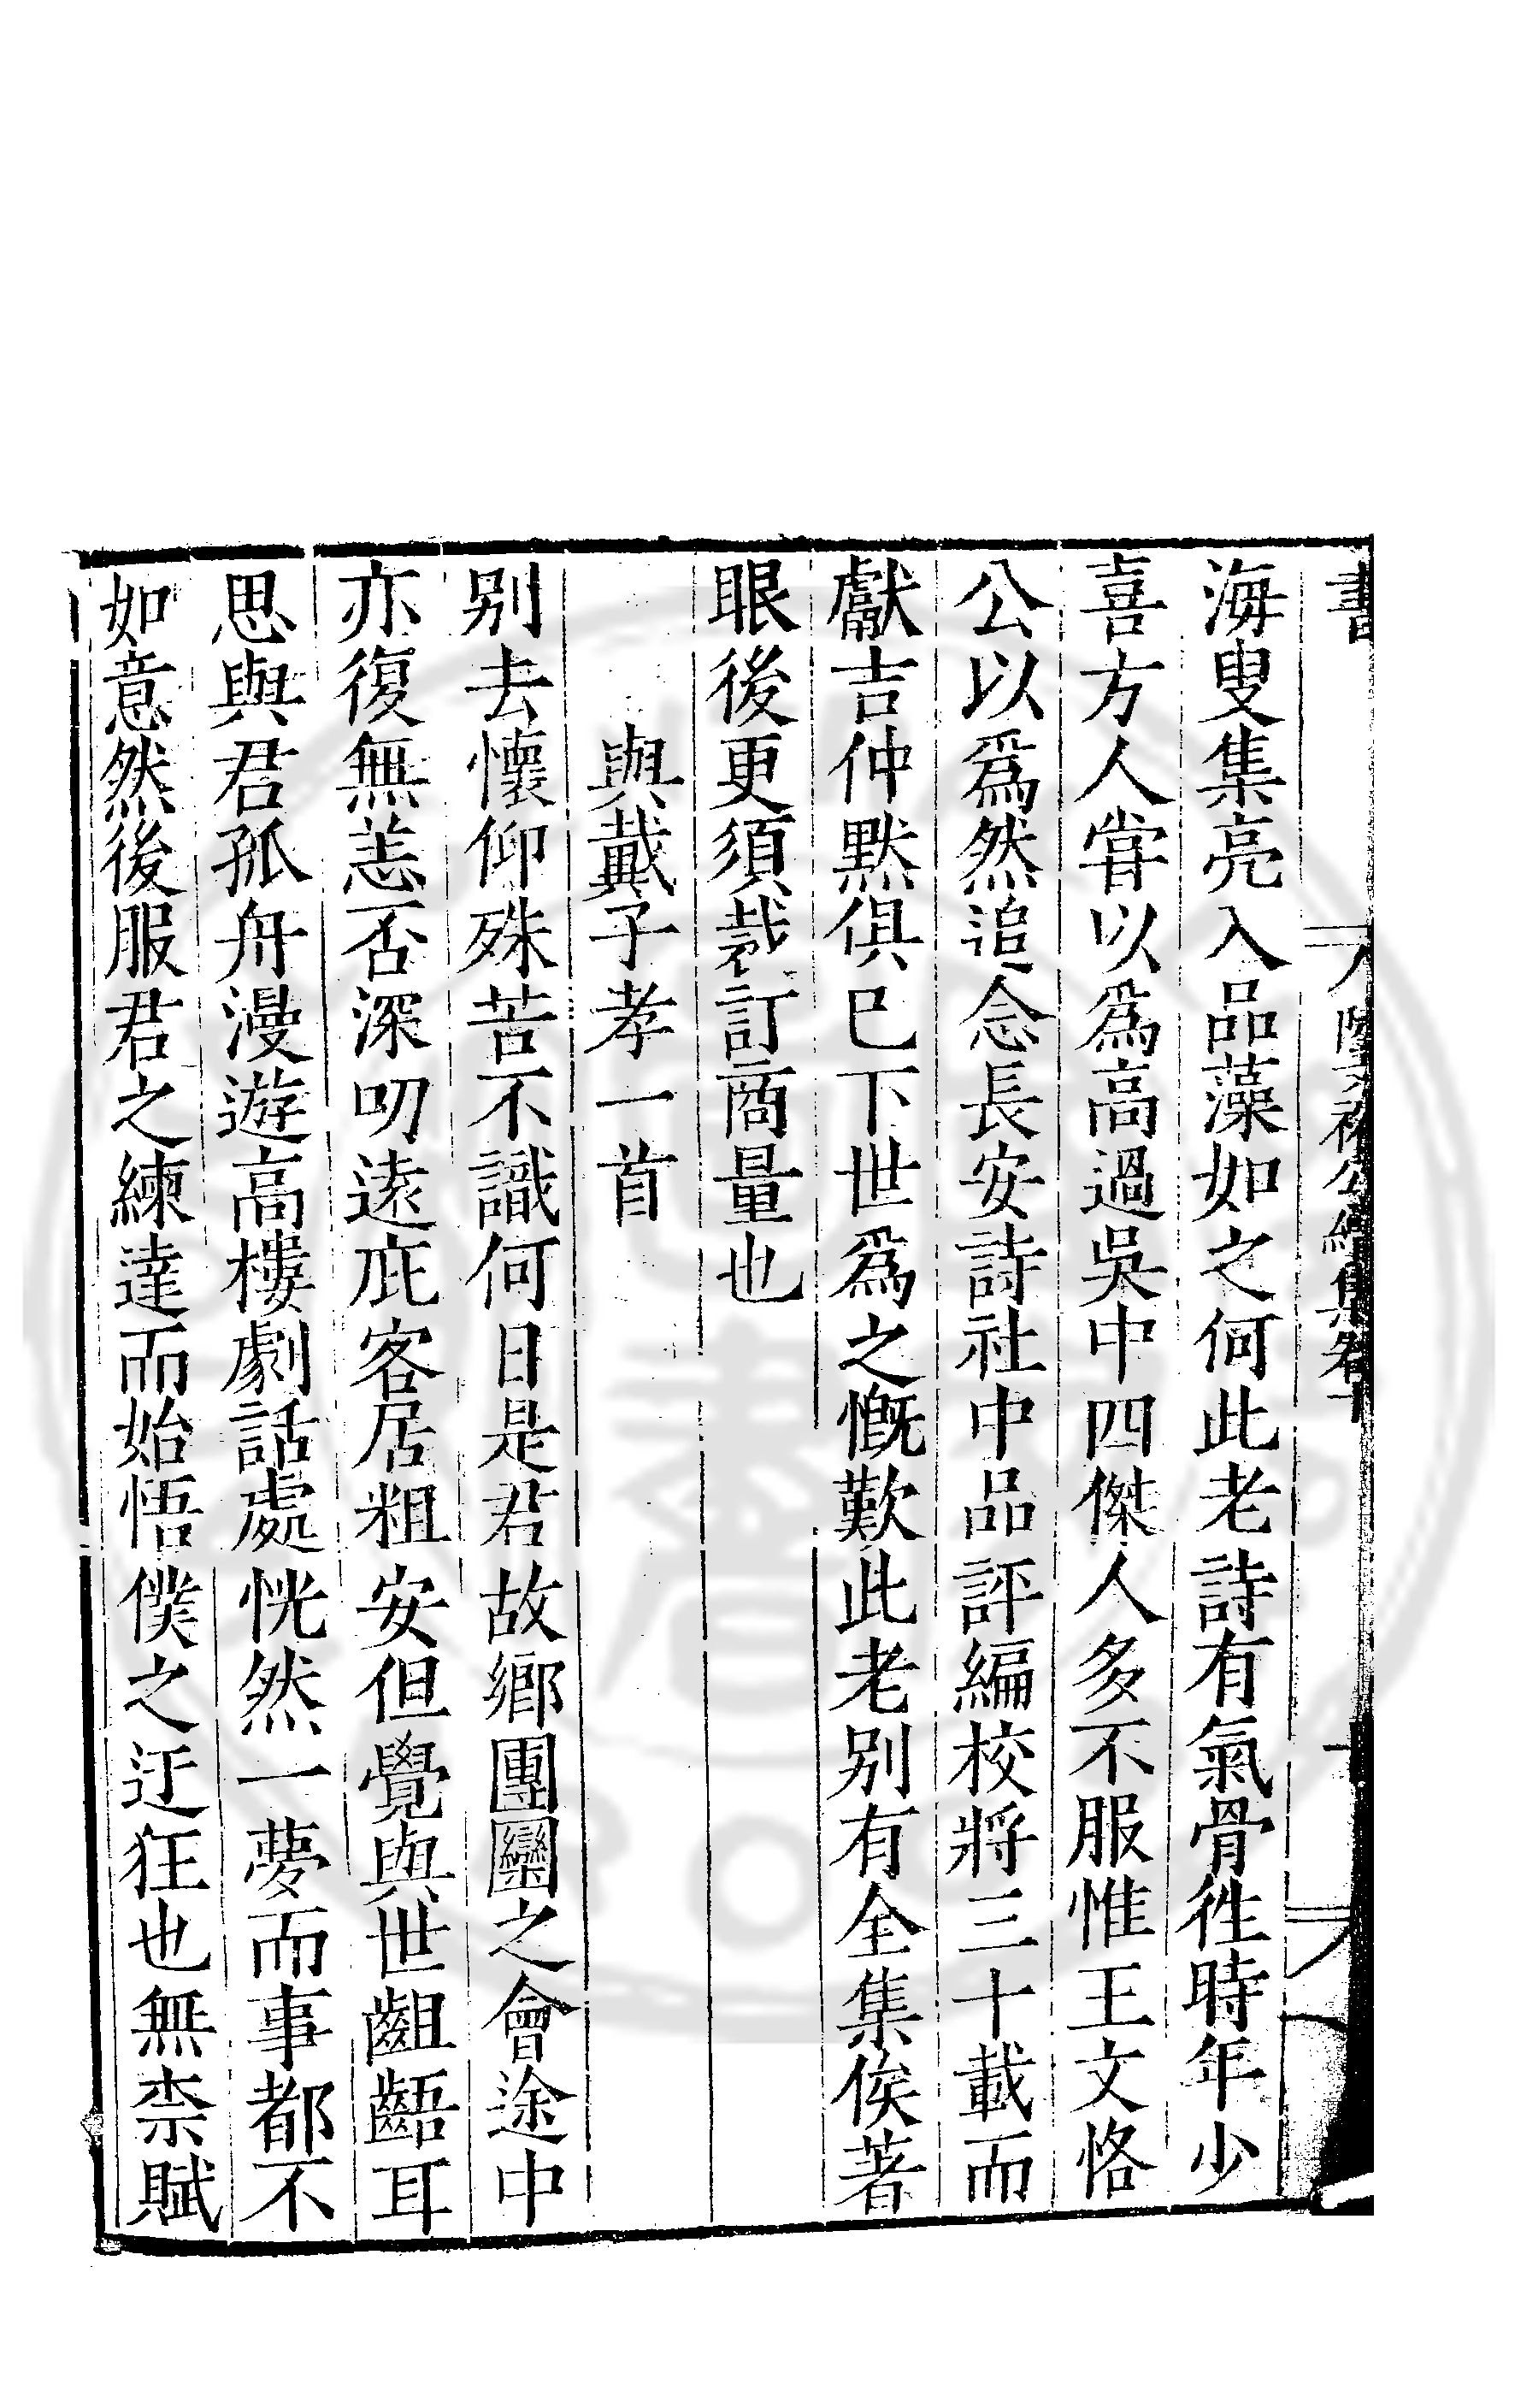 海叟集亮入品藻如之何此老詩有氣骨徃時年少
喜方人甞以爲高過吳中四傑人多不服惟王文恪
公以爲然追念長安詩社中品評編校將三十載而
獻吉仲默俱已下世爲之慨歎此老别有全集俟著
眼後更須裁訂商量也
與戴子孝一首
别去懷仰殊苦不識何日是君故鄉團圞之會途中
亦復無恙否深叨遠庇客居粗安但覺與世齟齬耳
思與君孤舟漫遊高樓劇話處恍然一夢而事都不
如意然後服君之練達而始悟僕之迂狂也無柰賦